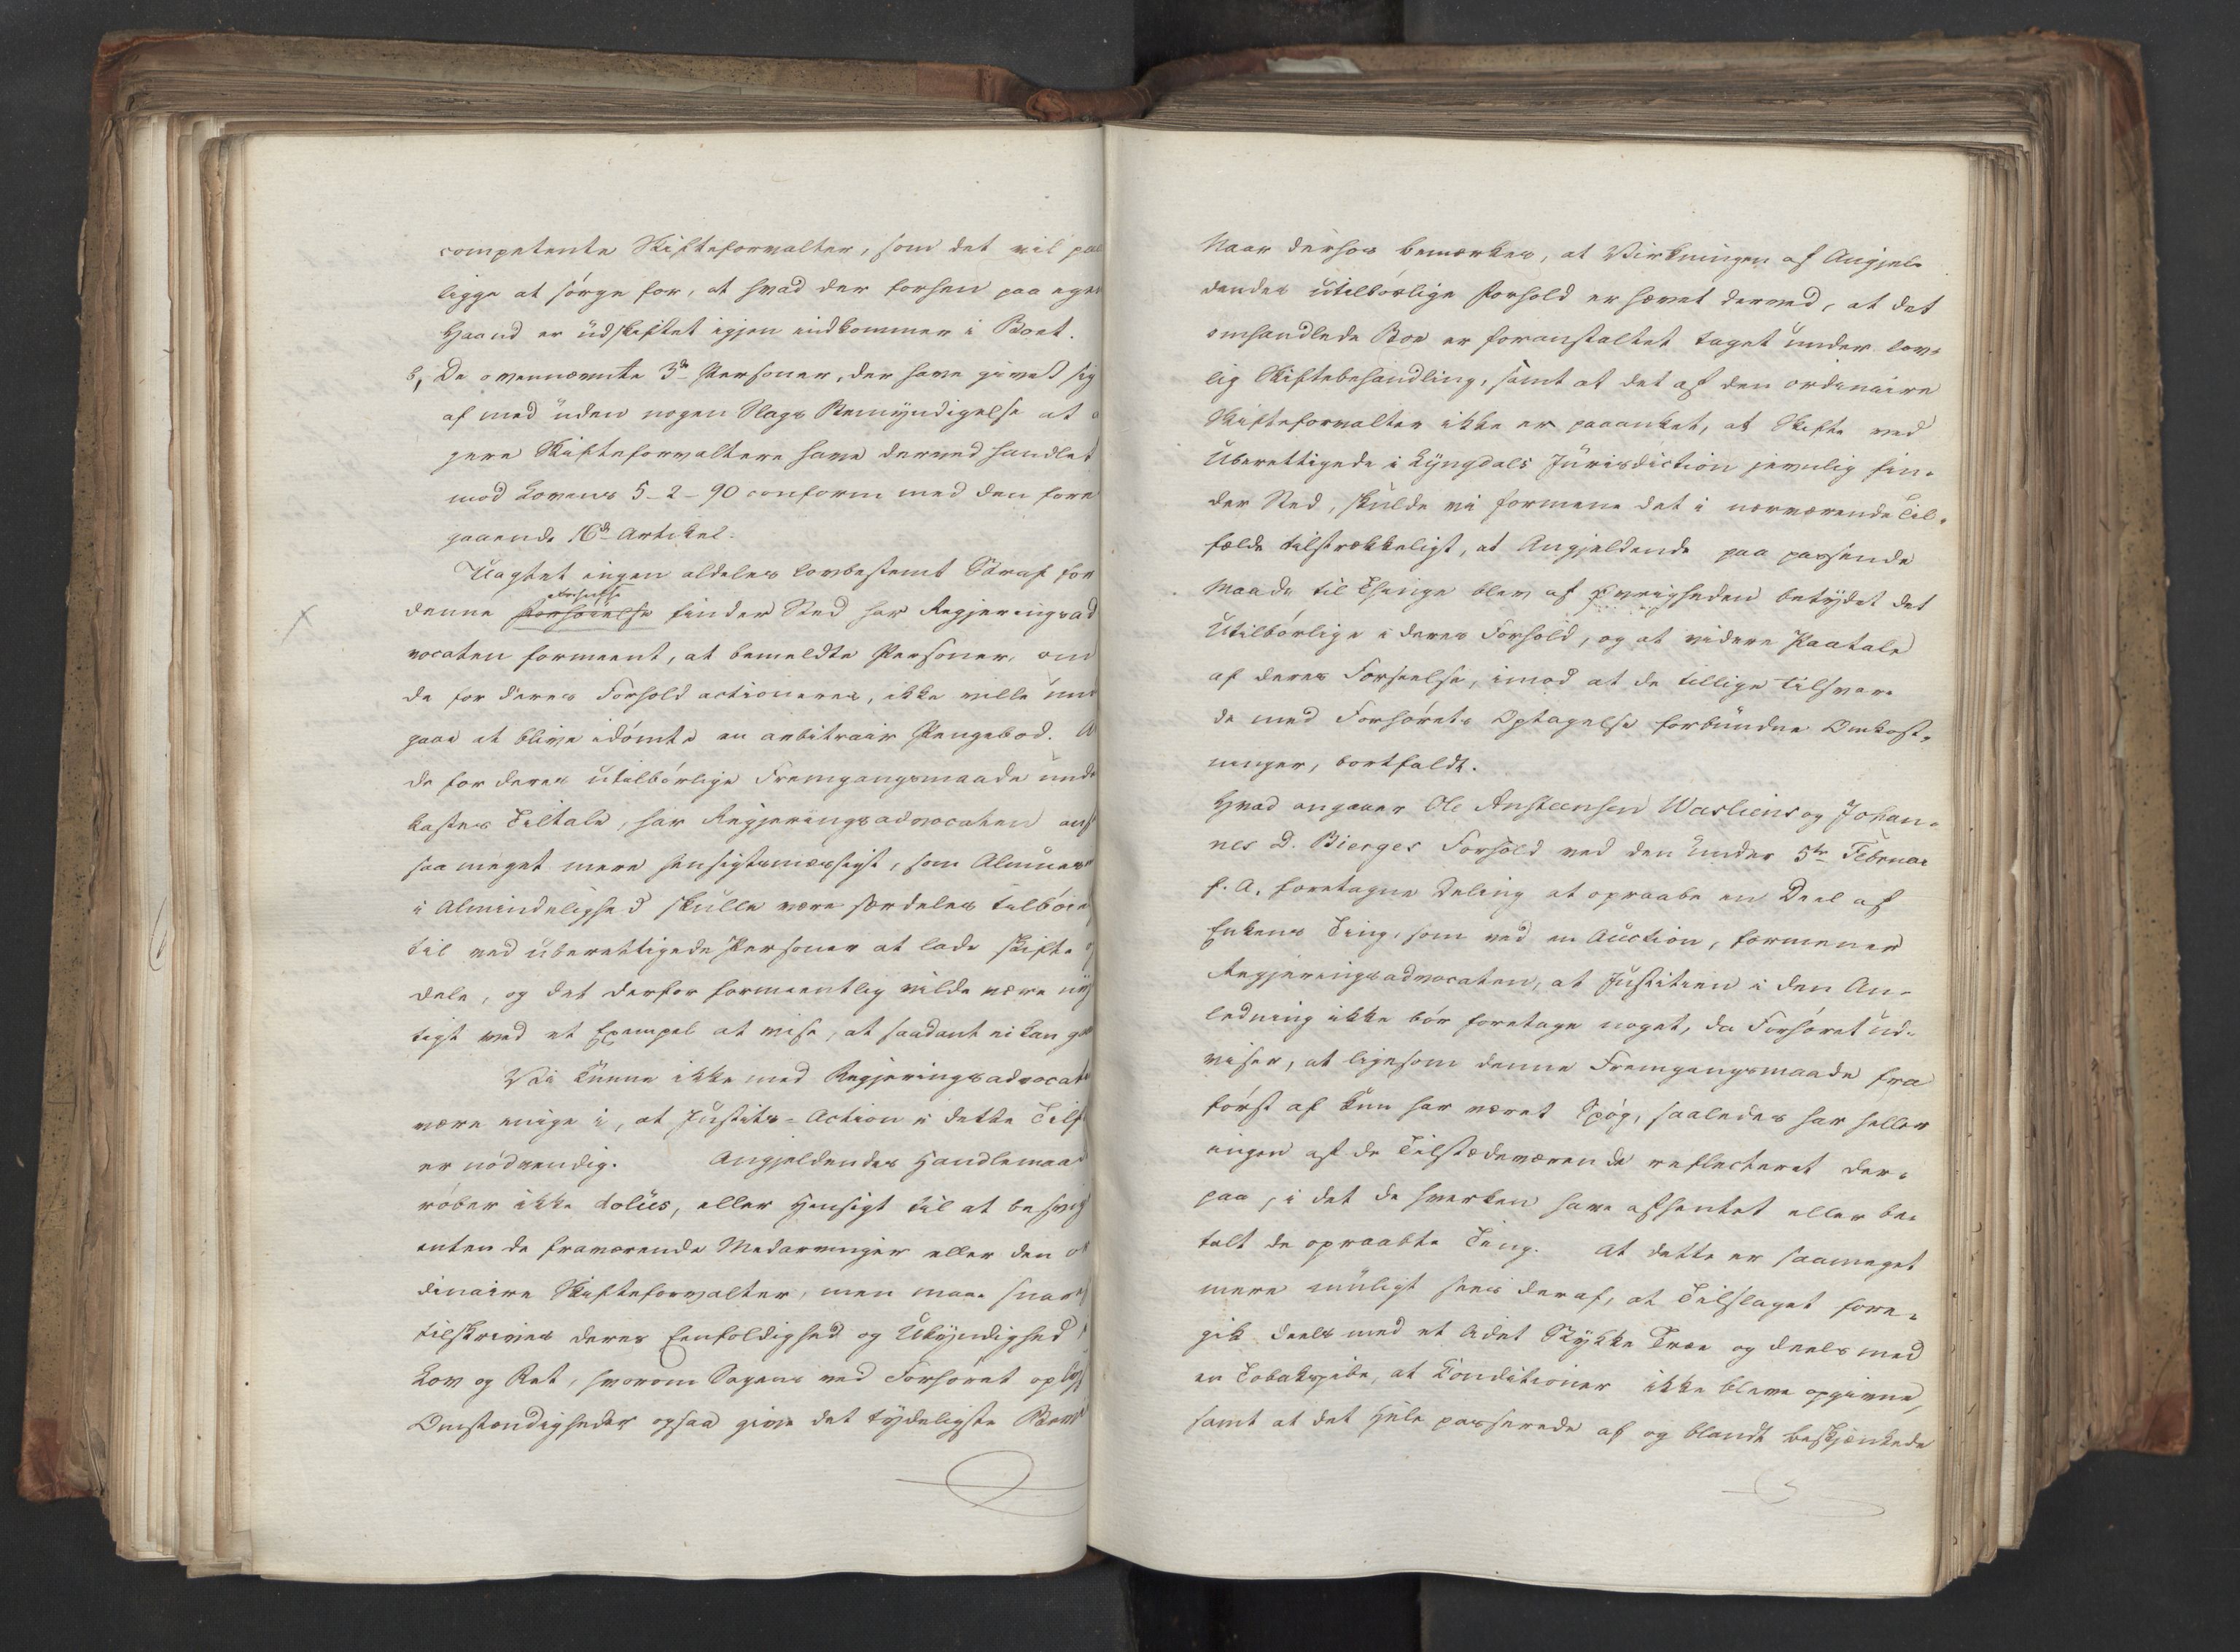 competente Skifteforvalter, som det vil paa
ligge at sörge for, at hvad der forhen paa egen
Haand er udskiftet igjen indkommer i Boet.
b, De ovennævnte 3de Personer, der have givet sig
af med uden nogen Slags Bemyndigelse at a
gere Skifteforvaltere have derved handlet
mod Lovens 5-2-90 conform med den fore
gaaende 16de Artikel.
Uagtet ingen aldeles lovbestemt Straf for
Forseelse
denne finder Sted har Regjeringsad
vocaten formeent, at bemeldte Personer, om
de for deres Forhold actioneres, ikke ville und
gaae at blive idömte en arbitrair Pengebod. At
de for deres utilbörlige Fremgangsmaade unde
kastes Tiltale, har Regjeringsadvocaten anf
saa meget mere hensigtsmæssigt, som Almuen
i Almindelighed skulle være særdeles tilböie
til ved uberettigede Personer at lade skifte og
dele, og det derfor formeentlig vilde være nyt
tigt ved et Exempel at vise, at saadant ei kan gaa
Vi kunne ikke med Regjeringsadvocate
være enige i, at Justits-Action i dette Tilf
er nödvendig. Angjeldendes Handlemaad
röber ikke dolus, eller Hensigt til at besvig
enten de fraværende Medarvinger eller den or
dinaire Skifteforvalter, men maae snares
tilskrives deres Eenfoldighed og Ukyndighed i
Lov og Ret, hvorom Sagens ved Forhöret oplys
Omstændigheder ogsaa give det tydeligste Beviis
Naar derhos bemærkes, at Virkningen af Angjel-
dendes utilbörlige Forhold er hævet derved, at det
omhandlede Boe er foranstaltet taget under lov-
lig Skiftebehandling, samt at det af den ordinaire
Skifteforvalter ikke er paaanket, at Skifte ved
Uberettigede i Lyngdals Jurisdiction jevnlig fin-
der Sted, skulde vi formene det i nærværende Til-
fælde tilstrækkeligt, at Angjeldende paa passende
Maade til Thinge blev af Øvrigheden betydet det
Utilbörlige i deres Forhold, og at videre Paatale
af deres Forseelse, imod at de tillige tilsvare
de med Forhörets Optagelse forbundne Omkost-
ninger, bortfaldt.
Hvad angaaer Ole Ansteensen Wasliens og Johan-
nes D. Bierges Forhold ved den under 5te Februar
f. A. foretagne Deling at opraabe en Deel af
Enkens Ting, som ved en Auction, formener
Regjeringsadvocaten, at Justitien i den An-
ledning ikke bör foretage noget, da Forhöret ud-
viser, at ligesom denne Fremgangsmaade fra
först af kun har været Spög, saaledes har heller
ingen af de Tilstædeværende reflecteret der-
paa, i det de hverken have afhentet eller be-
talt de opraabte Ting. At dette er saameget
mere muligt sees deraf, at Tilslaget fore-
gik deels med et lidet Stykke Træe og deels med
en Tobakspibe, at Conditioner ikke bleve opgivne,
samt at det Hele passerede af og blandt beskjænkede